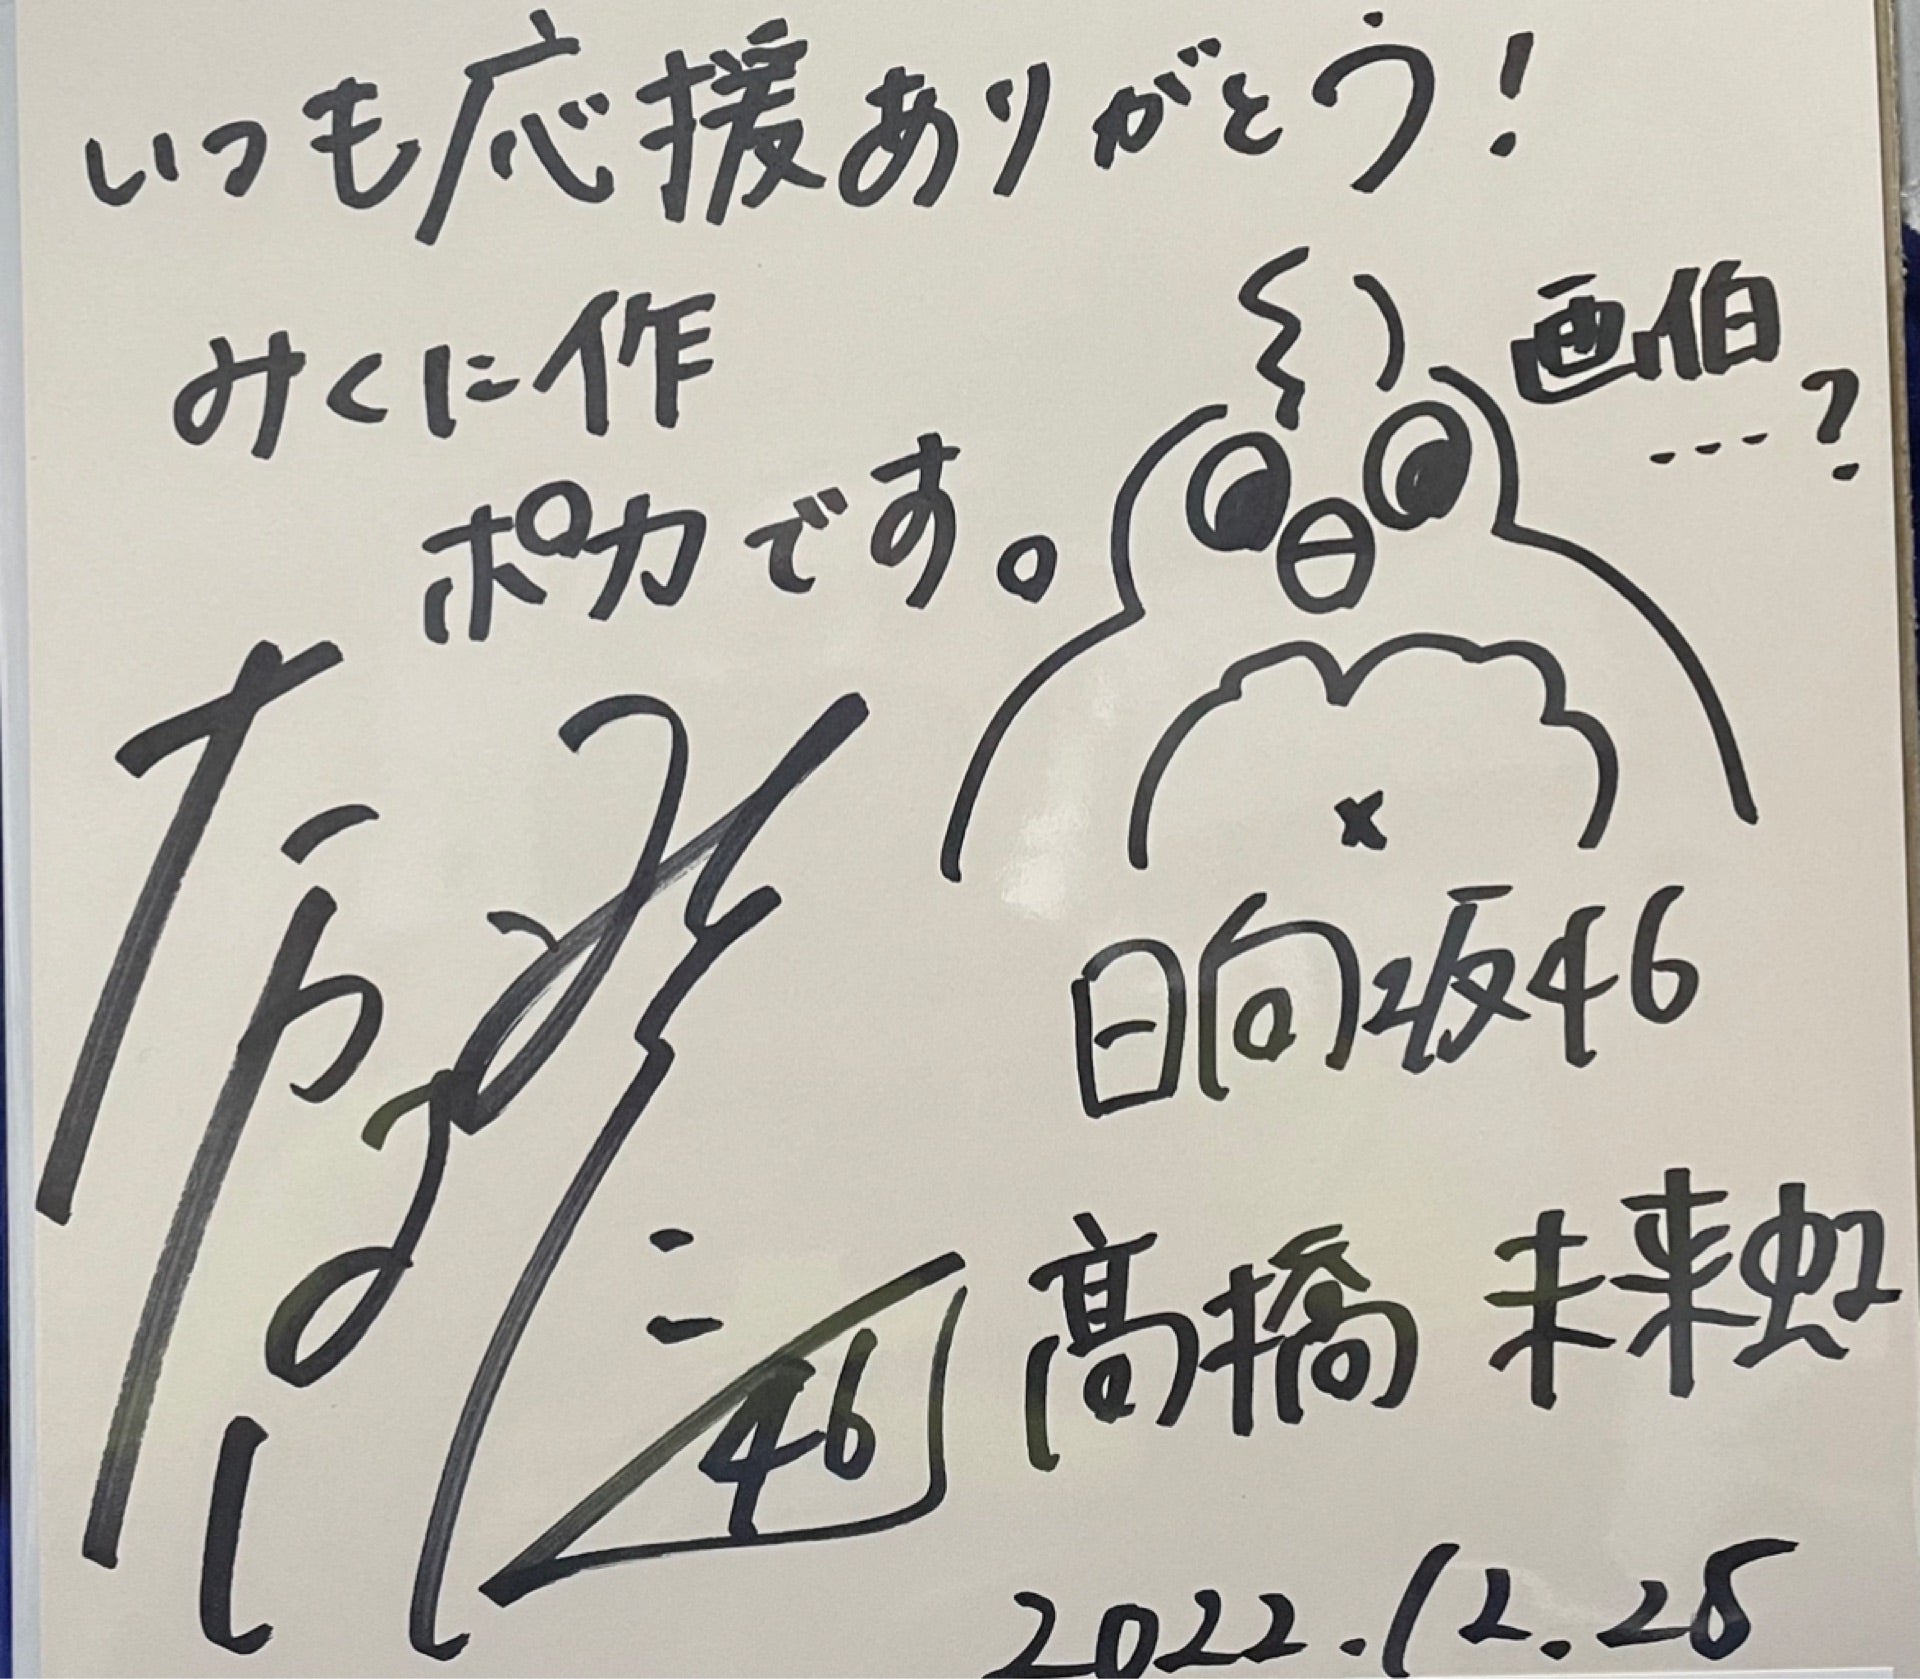 いつも応援ありがとう！
みくに作
ポカです。
画伯
---?
日向坂46
たかはしみくに
46
髙橋 未来虹
2022.12.28